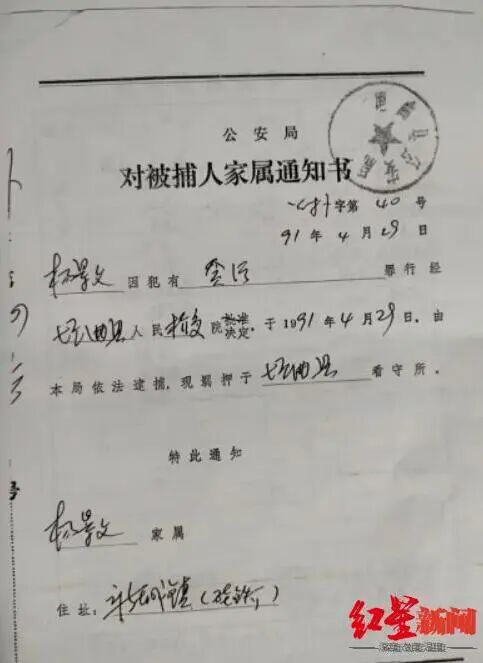 公安局
对被捕人家属通知书
字第 40 号
91 年 4 月 29 日
杨景文 因犯有 罪行经
曲县人民检察院批准决定，于1991年4月29日，由
本局依法逮捕，现羁押于 曲县 看守所。
特此通知
杨景文 家属
住址：
红星新闻